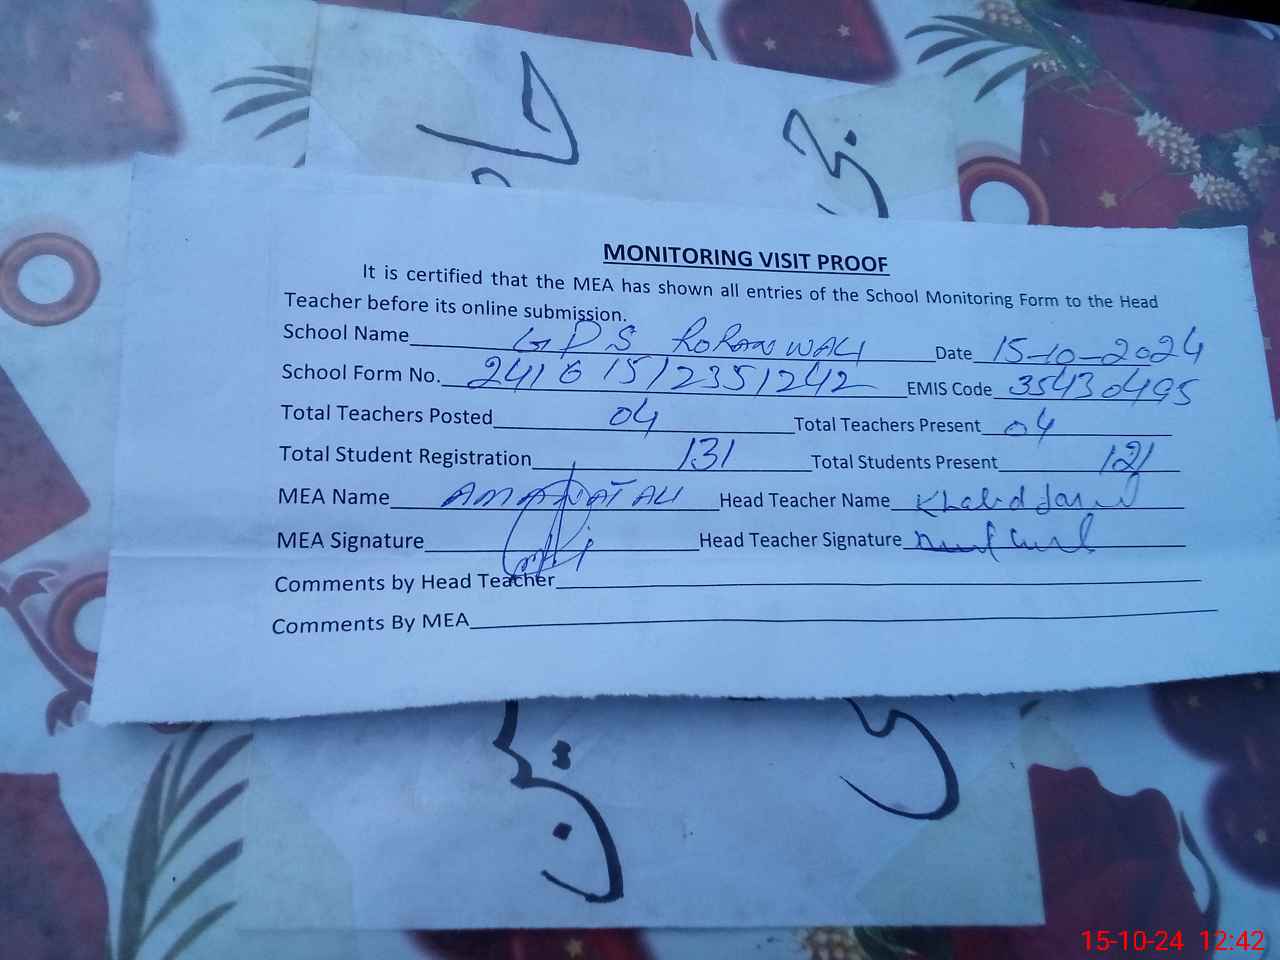 MONITORING VISIT PROOF
It is certified that the MEA has shown all entries of the School Monitoring Form to the Head
Teacher before its online submission.
School Name GPS RORANWALI Date 15-10-2024
School Form No. 24101512351242 EMIS Code 35430495
Total Teachers Posted 04 Total Teachers Present 04
Total Student Registration 131 Total Students Present 121
MEA Name AMANAT ALI Head Teacher Name Khalid
MEA Signature Head Teacher Signature
Comments by Head Teacher
Comments By MEA
15-10-24 12:42